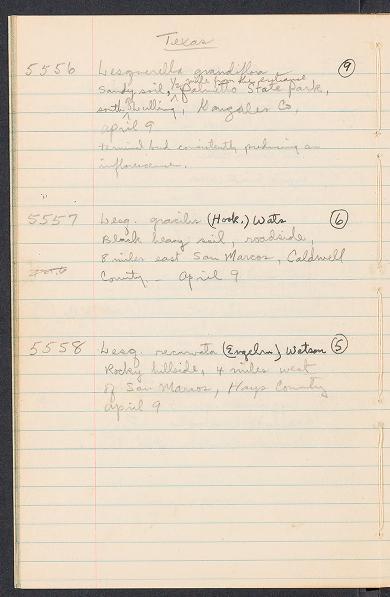 Texas
5556 Lesquerella grandiflora 9
Sandy soil, 1/2 mile from the entrance Palmetto State Park,
south Luling, Gonzales Co,
April 9
Terminal bud consistently producing an
inflorescence.
5557 Lesq. gracilis (Hook.) Wats 6
Black heavy soil, roadside,
8 miles east San Marcos, Caldwell
County. April 9
5558 Lesq. recurvata (Engelm.) Watson 5
Rocky hillside, 4 miles west
of San Marcos, Hays County
April 9